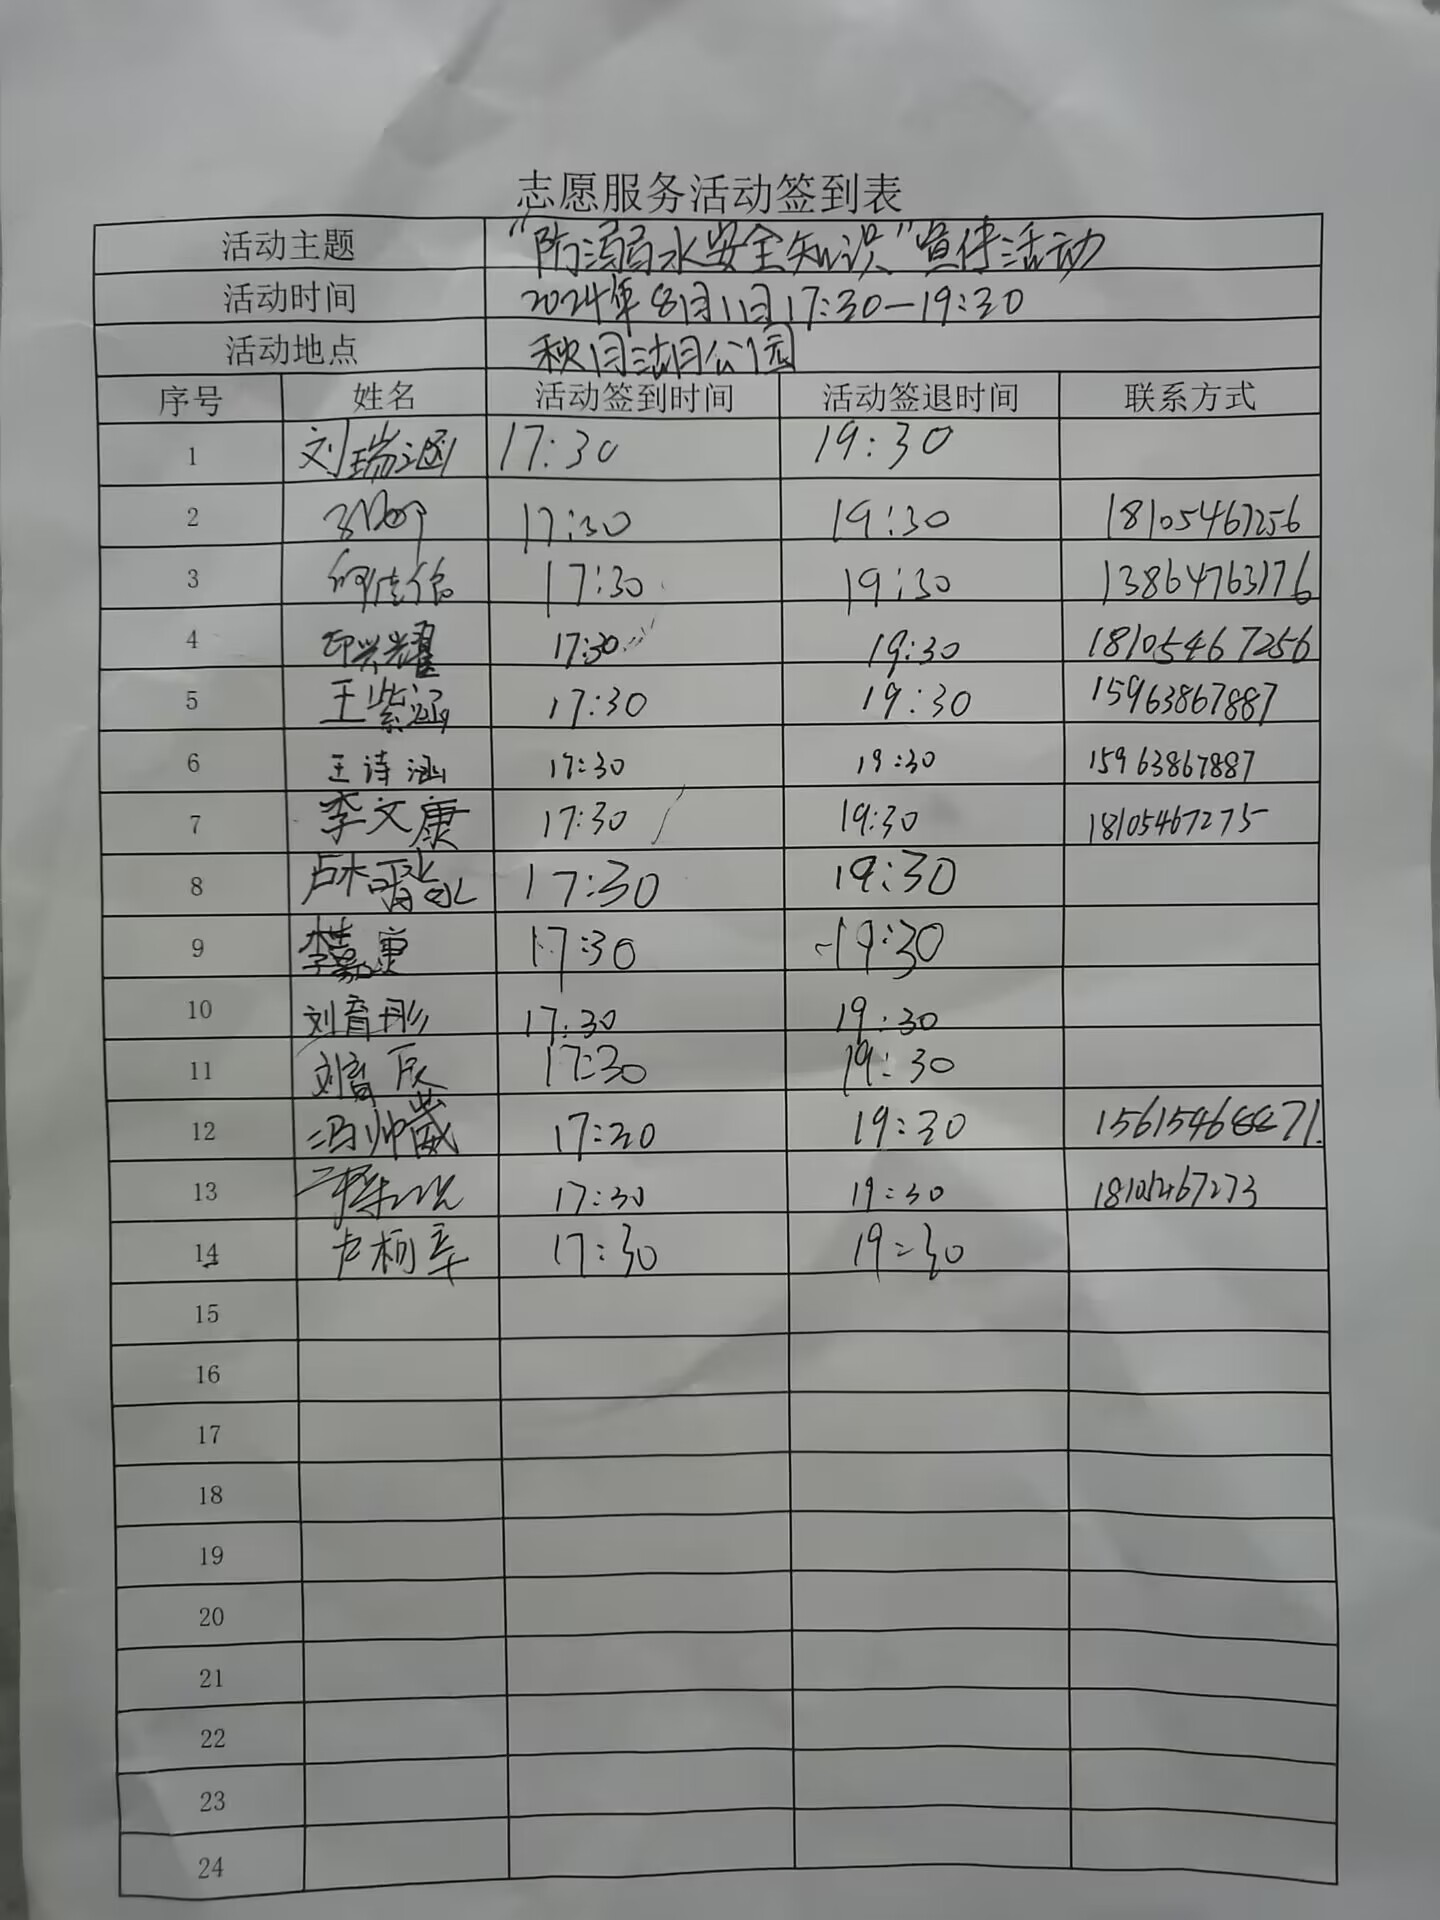 志愿服务活动签到表
活动主题 "防溺水安全知识"宣传活动
活动时间 2024年8月11日17:30—19:30
活动地点 秋月湖公园
序号 姓名 活动签到时间 活动签退时间 联系方式
1 刘瑞涵 17:30 19:30
2 17:30 19:30 18105467256
3 何佳铭 17:30 19:30 13864763176
4 印兴耀 17:30 19:30 18105467256
5 王紫涵 17:30 19:30 15963867887
6 王诗涵 17:30 19:30 15963867887
7 李文康 17:30 19:30 18105467275
8 17:30 19:30
9 李嘉康 17:30 19:30
10 刘育彤 17:30 19:30
11 刘育辰 17:30 19:30
12 冯帅崴 17:30 19:30
13 17:30 19:30 18105467273
14 卢柯辛 17:30 19:30
15
16
17
18
19
20
21
22
23
24